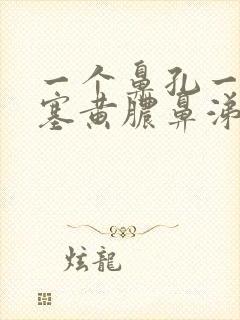 一个鼻孔一
塞黄脓鼻涕
炫龍